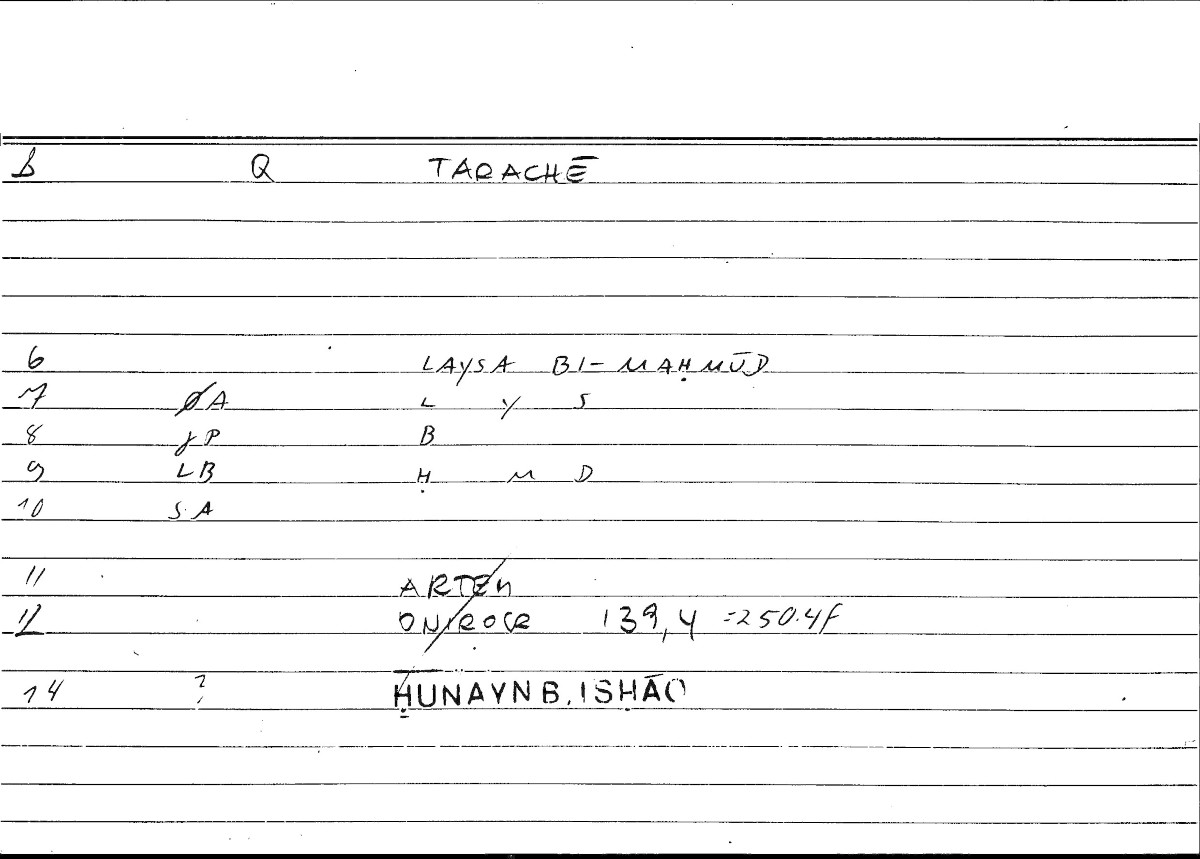 Q TARACHĒ
6 LAYSA BI-MAḤMŪD
7 ØA L Y S
8 JP B
9 LB Ḥ M D
10 S.A
11 ARTEM
12 ONIROCR 139,4 =250.4f
14 ? ḤUNAYN B. ISḤĀQ